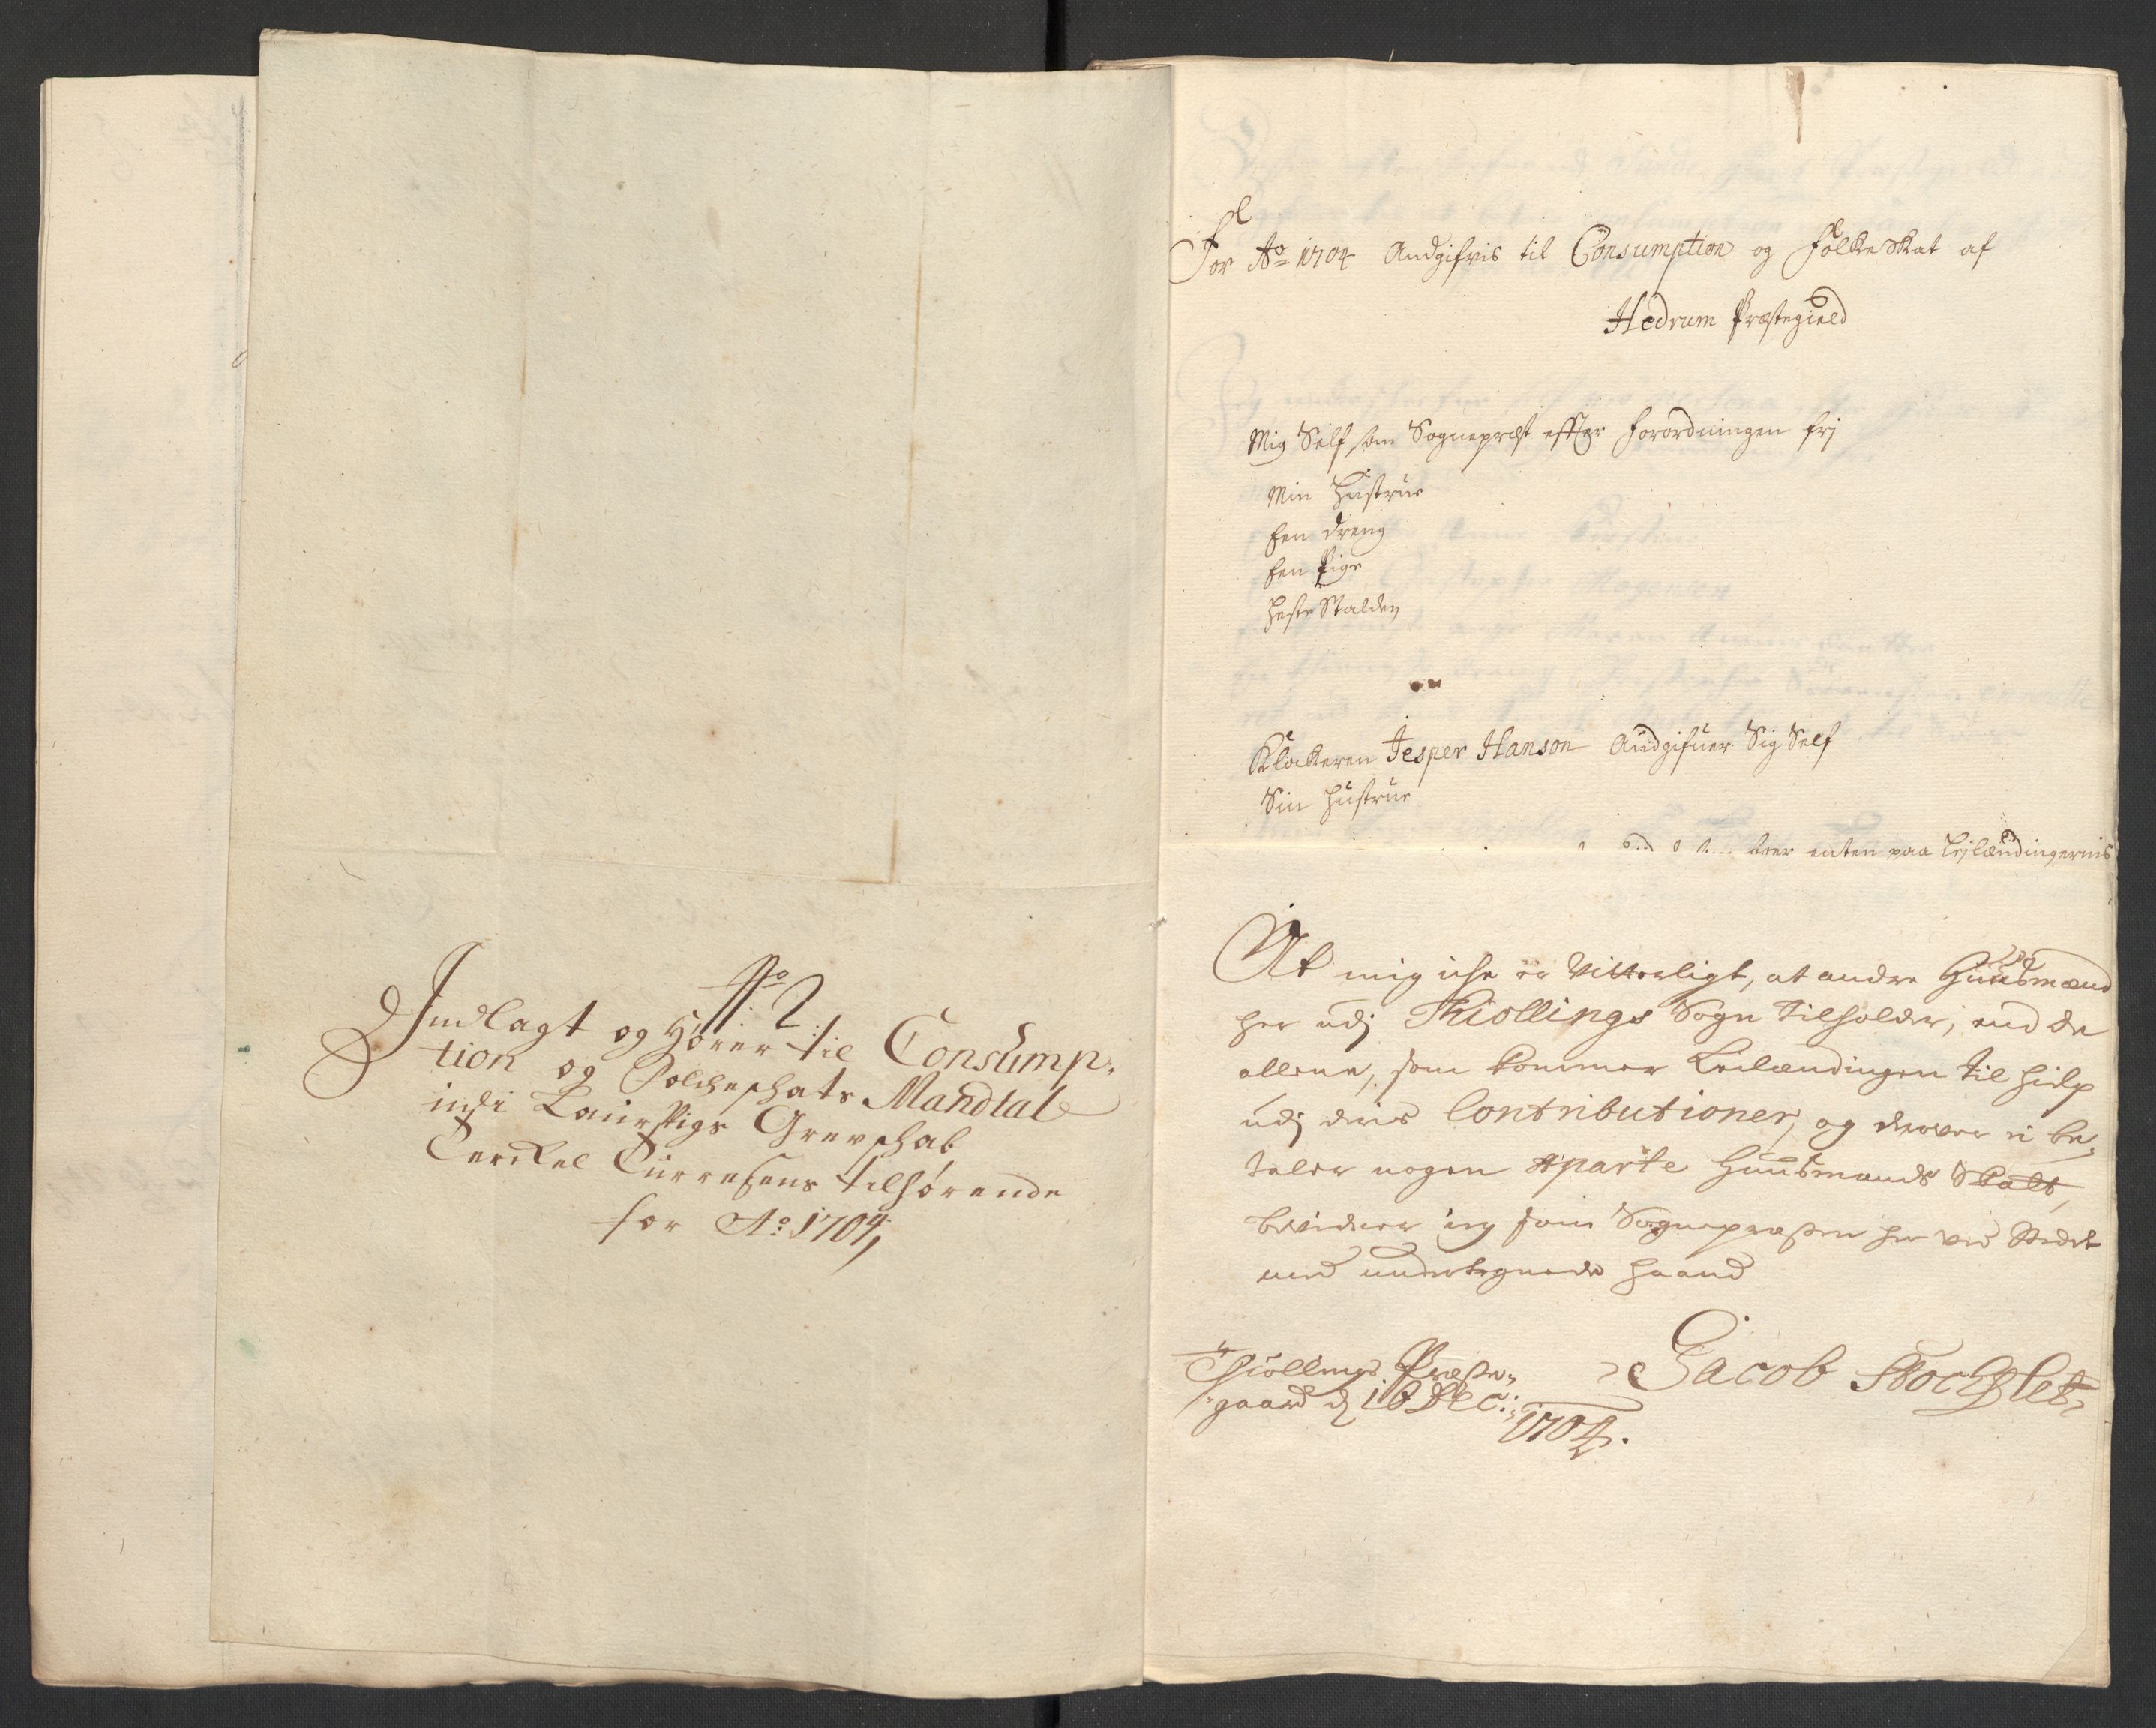 No 2
Indlagt og hører til Consump-
tion og Folcheschats Mandtal
udi Laurvigs Grevschab
Terckel Turresens tilhørende
for Ao 1704,
For Ao 1704 Andgifvis til Consumption og folkeskat af
Hedrum Præstegield
Mig Self som Sognepræst effter forordningen frj
Min Hustrue
Een dreng
Een Pige
Heste Stalden
Klockeren Jesper Hanson Andgifuer Sig Self
Sin Hustrue
enten paa Lejlændingernis
At mig iche er Vitterligt, at andre Huusmænd
her udj Thiøllings Sogn tilholder, end de
allene, som kommer Leilændingen til hielp
udj deris Contributioner, og derover ei be-
taler nogen aparte Huusmands Skatt,
bevidner ieg som Sognepræsten her ved Stedet
med undertegnede haand
Thiøllings Præste-
gaard d 16 Dec:
1704.
Jacob Stockflet